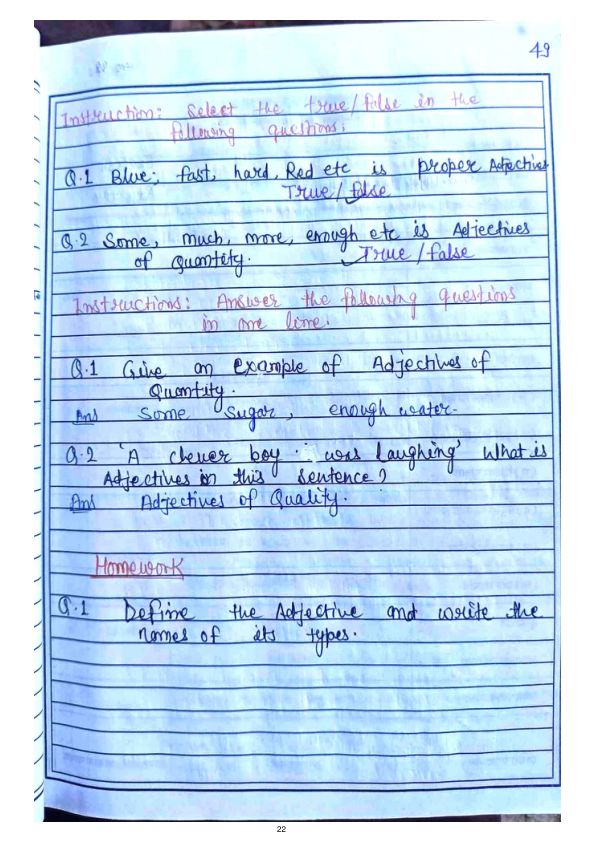 49
Instruction: Select the true/false in the
following questions:
Q.1 Blue, fast, hard, Red etc is proper Adjective
True/false
Q.2 Some, much, more, enough etc is Adjectives
of Quantity. True/false
Instructions: Answer the following questions
in one line.
Q.1 Give an Example of Adjectives of
Quantity.
Ans Some Sugar, enough water.
Q.2 'A clever boy was laughing' What is
Adjectives in this sentence?
Ans Adjectives of Quality.
Homework
Q.1 Define the Adjective and write the
names of its types.
22